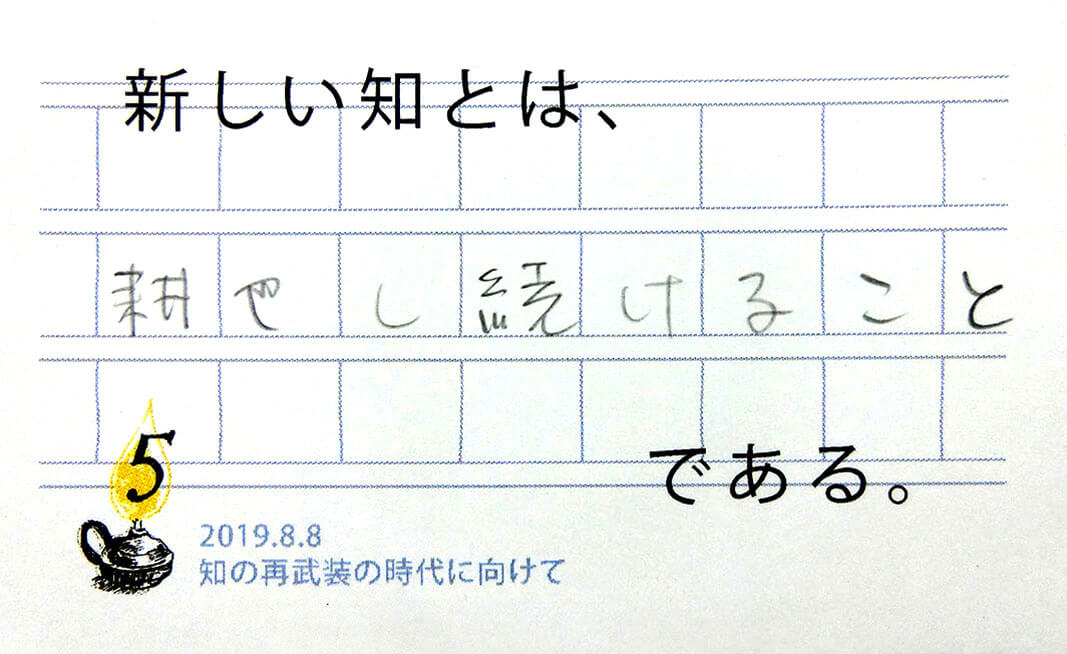 新しい知とは、
耕やし続けること
である。
5
2019.8.8
知の再武装の時代に向けて